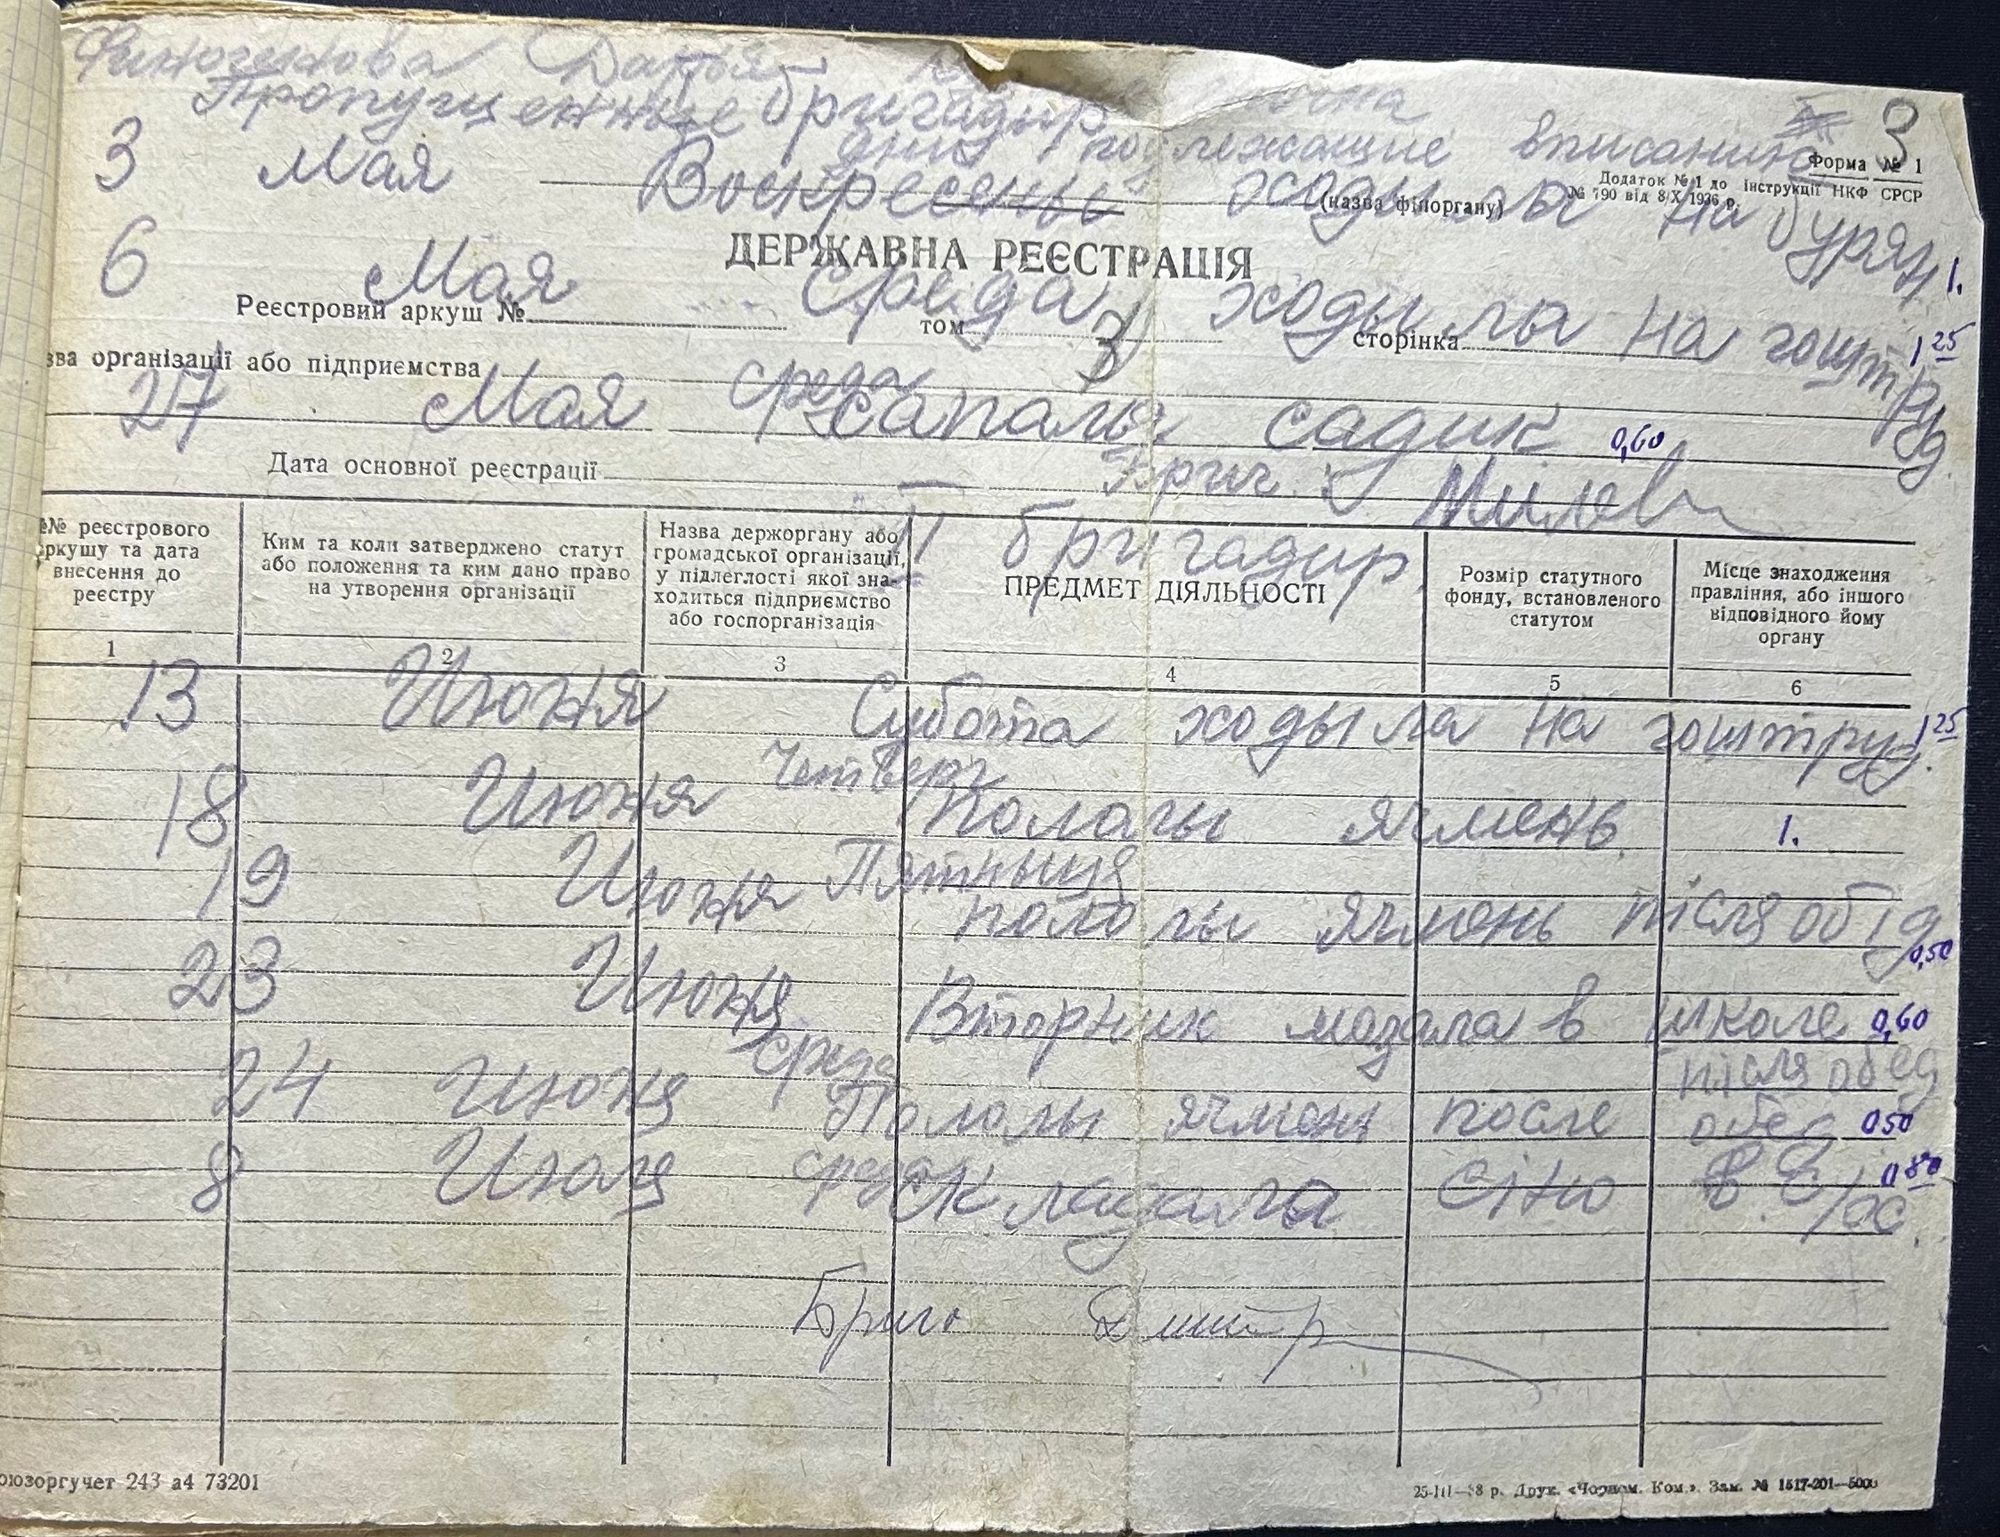 Финогенова Дарья
Пропущенные бригадиром
дни подлежащие вписанию 3
Форма № 1
Додаток № 1 до Інструкції НКФ СРСР
№ 790 від 8/X 1936 р.
3 Мая Воскресенье ходыла на бурян 1.
(назва фіноргану)
ДЕРЖАВНА РЕЄСТРАЦІЯ
6 Мая среда ходыла на гоштруд 1 25
Реєстровий аркуш № том 3 сторінка
зва організації або підприємства
27 Мая среда сапалы садик 0,60
Дата основної реєстрації
Бриг. Милев
II бригадир
№№ реєстрового аркушу та дата внесення до реєстру
Ким та коли затверджено статут або положення та ким дано право на утворення організації
Назва держоргану або громадської організації, у підлеглості якої знаходиться підприємство або госпорганізація
ПРЕДМЕТ ДІЯЛЬНОСТІ
Розмір статутного фонду, встановленого статутом
Місце знаходження правління, або іншого відповідного йому органу
1 2 3 4 5 6
13 Июня Субота ходыла на гоштруд. 1 25
18 Июня Четверг Пололы ячмень 1.
19 Июня Пятныця пололы ячмень після обід 0,50
23 Июня Вторник мазала в школе 0,60
після обед
24 Июня среда Пололы ячмен после обед 0 50
8 Июля среда складала сіно в 0 80
Бриг Дмитр
оюзоргучет 243 а4 73201
25-III—38 р. Друк. «Чорном. Ком.». Зам. № 1517-201—5000